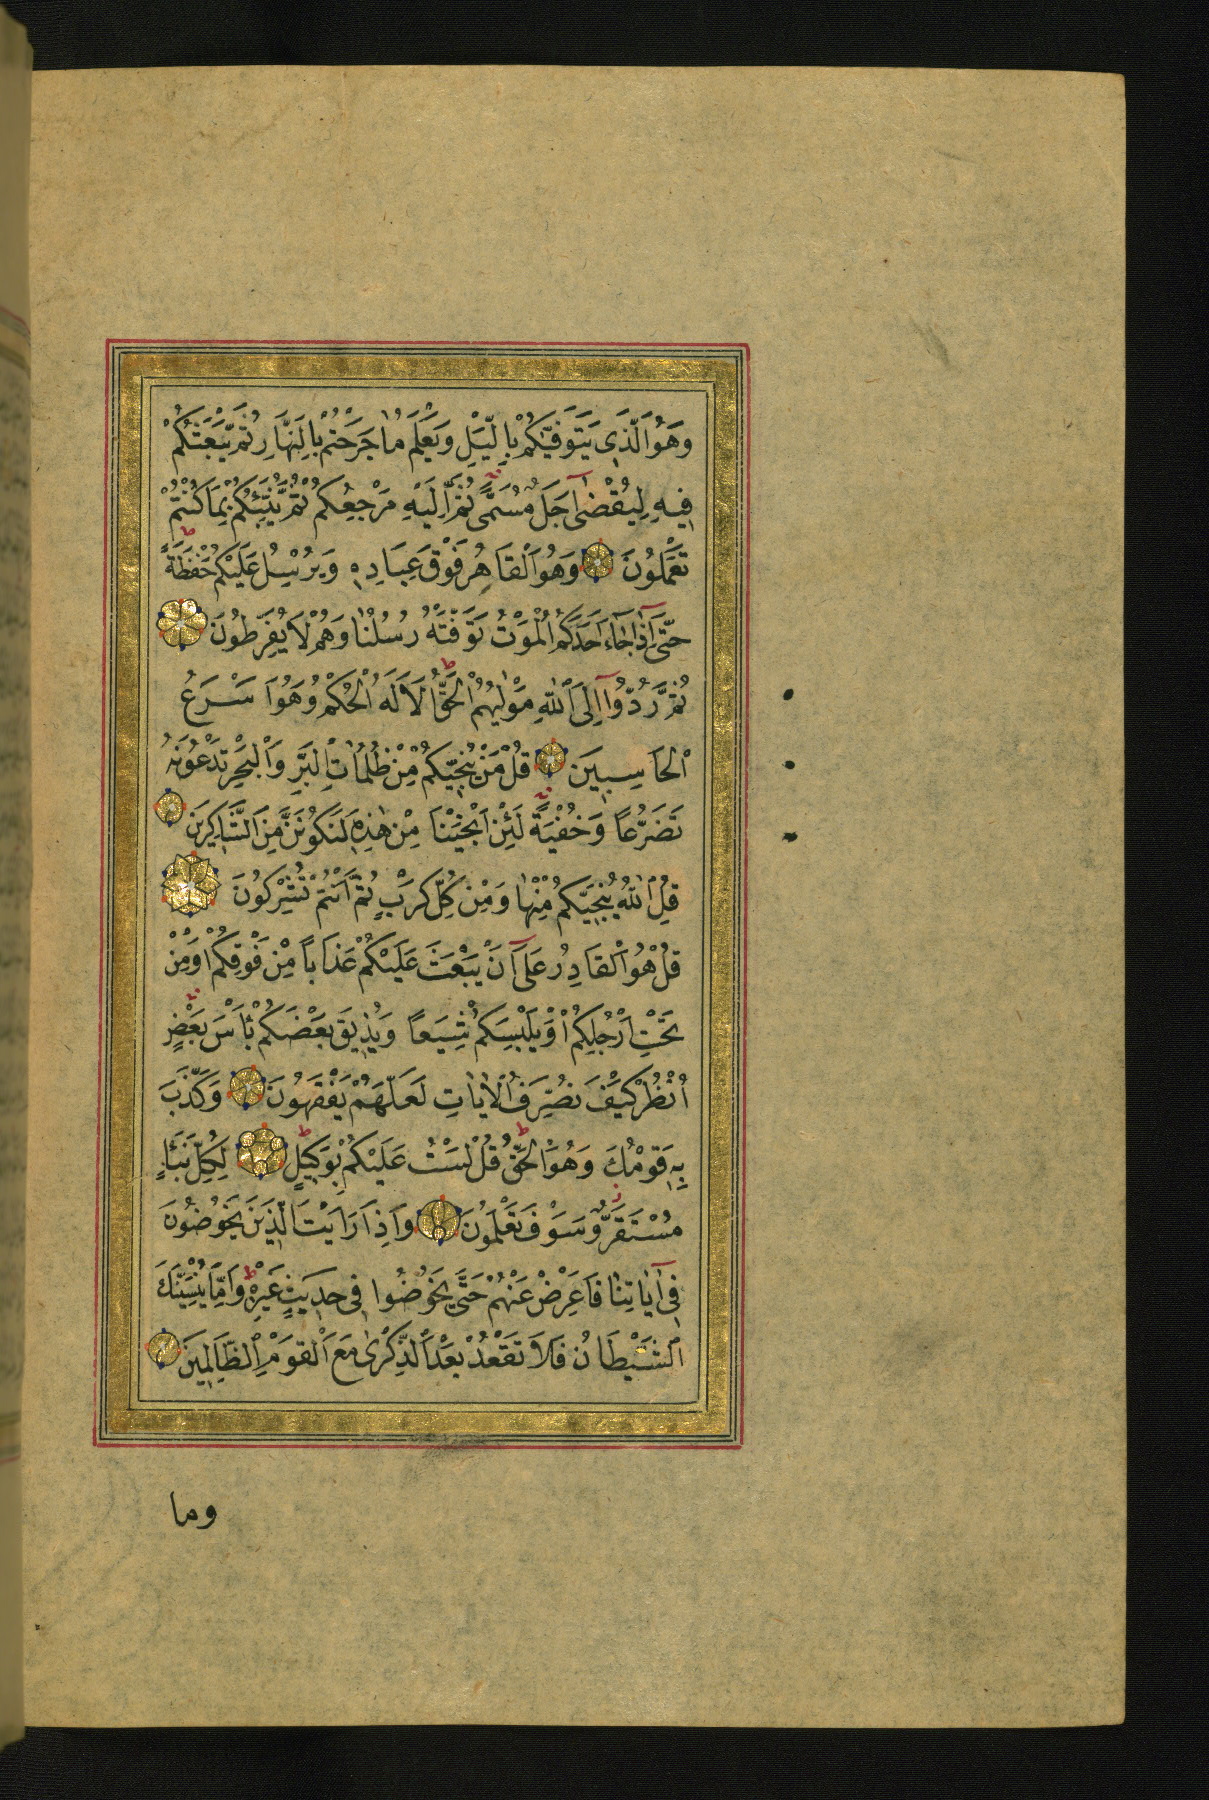 وَهُوَ الَّذِي يَتَوَفّٰيكُمْ بِالَّيْلِ وَيَعْلَمُ مَا جَرَحْتُمْ بِالنَّهَارِ ثُمَّ يَبْعَثُكُمْ
فِيهِ لِيُقْضٰٓى اَجَلٌ مُسَمًّى ثُمَّ اِلَيْهِ مَرْجِعُكُمْ ثُمَّ يُنَبِّئُكُمْ بِمَا كُنْتُمْ
تَعْمَلُونَ وَهُوَ الْقَاهِرُ فَوْقَ عِبَادِهِ وَيُرْسِلُ عَلَيْكُمْ حَفَظَةً ط
حَتّٰٓى اِذَا جَآءَ اَحَدَكُمُ الْمَوْتُ تَوَفَّتْهُ رُسُلُنَا وَهُمْ لَا يُفَرِّطُونَ
ثُمَّ رُدُّوٓا اِلَى اللّٰهِ مَوْلٰيهُمُ الْحَقِّ ط اَلَا لَهُ الْحُكْمُ وَهُوَ اَسْرَعُ
الْحَاسِبِينَ قُلْ مَنْ يُنَجِّيكُمْ مِنْ ظُلُمَاتِ الْبَرِّ وَالْبَحْرِ تَدْعُونَهُ
تَضَرُّعًا وَخُفْيَةً لَئِنْ اَنْجَيْتَنَا مِنْ هٰذِهِ لَنَكُونَنَّ مِنَ الشَّاكِرِينَ
قُلِ اللّٰهُ يُنَجِّيكُمْ مِنْهَا وَمِنْ كُلِّ كَرْبٍ ثُمَّ اَنْتُمْ تُشْرِكُونَ
قُلْ هُوَ الْقَادِرُ عَلٰٓى اَنْ يَبْعَثَ عَلَيْكُمْ عَذَابًا مِنْ فَوْقِكُمْ اَوْ مِنْ
تَحْتِ اَرْجُلِكُمْ اَوْ يَلْبِسَكُمْ شِيَعًا وَيُذِيقَ بَعْضَكُمْ بَاْسَ بَعْضٍ
اُنْظُرْ كَيْفَ نُصَرِّفُ الْاٰيَاتِ لَعَلَّهُمْ يَفْقَهُونَ وَكَذَّبَ
بِهِ قَوْمُكَ وَهُوَ الْحَقُّ ط قُلْ لَسْتُ عَلَيْكُمْ بِوَكِيلٍ ط لِكُلِّ نَبَاٍ
مُسْتَقَرٌّ وَسَوْفَ تَعْلَمُونَ وَاِذَا رَاَيْتَ الَّذِينَ يَخُوضُونَ
فِيٓ اٰيَاتِنَا فَاَعْرِضْ عَنْهُمْ حَتّٰى يَخُوضُوا فِي حَدِيثٍ غَيْرِهِ ط وَاِمَّا يُنْسِيَنَّكَ
الشَّيْطَانُ فَلَا تَقْعُدْ بَعْدَ الذِّكْرٰى مَعَ الْقَوْمِ الظَّالِمِينَ
وما